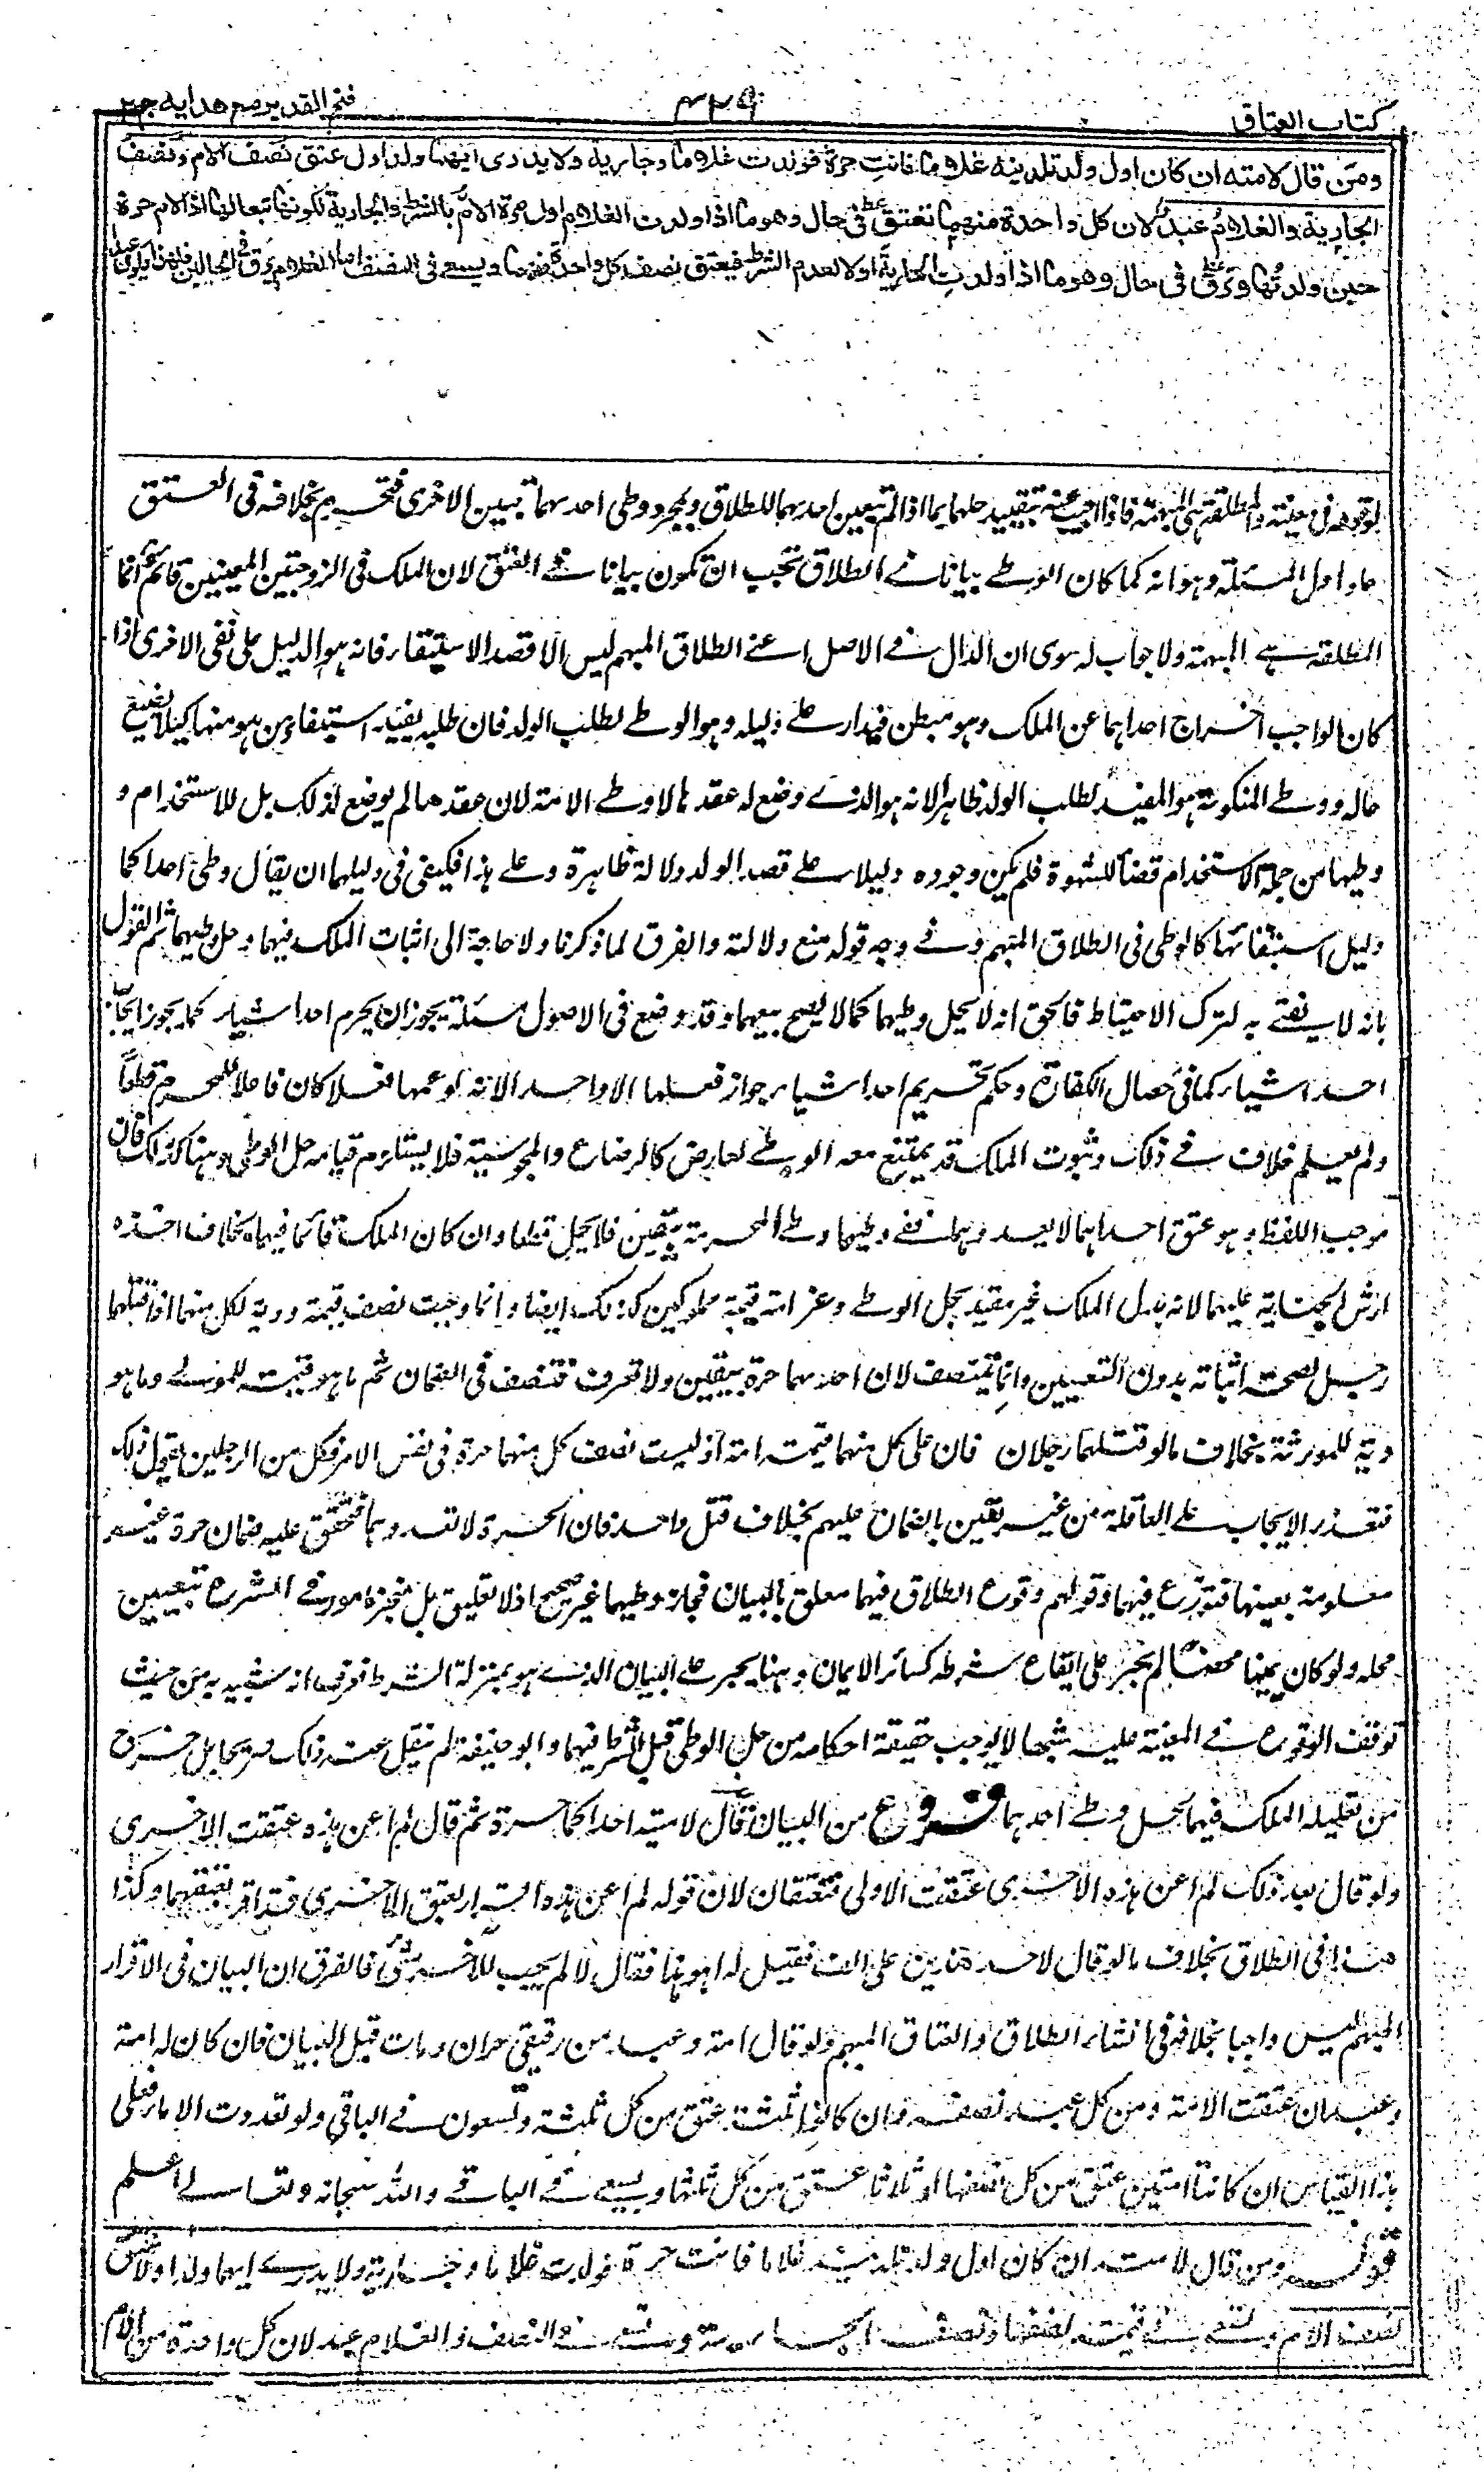 كتاب العتاق
فتح القدير مع هدايه ج٢
ومن قال لامته ان كان اول ولد تلدينه غلاما فانت حرة فولدت غلاما وجارية ولا يدرى ايهما ولد اول عتق نصف الام ونصف
الجارية والغلام عبد لان كل واحدة منهما تعتق فى حال وهو ما اذا ولدت الغلام اول مرة الام بالشرط والجارية لكونها تبعا لها اذ الام حرة
حين ولدتها وترق فى حال وهو ما اذا ولدت الجارية اولا لعدم الشرط فيعتق نصف كل واحدة منهما وتسعى فى النصف اما الغلام يرق فى الحالين فلهذا يكون عبدا
لوقوعه فى معينة والمطلقة هى المبهمة فاذا اجيب عنه بتقييد حلهما بما اذا لم تتعين احدهما للطلاق وبمجرد وطى احدهما تبين الاخرى فتحرم بخلافه فى العتق
عاد اول المسئلة وهو انه كما كان الوطے بيانا فے الطلاق تجب ان تكون بيانا فے العتق لان الملك فى الزوجتين المعينتين قائم انما
المطلقة هے المبهمة ولا جواب له سوى ان الدال فے الاصل اعنے الطلاق المبهم ليس الا قصد الاستبقاء فانه هو الدليل على نفى الاخرى اذا
كان الواجب اخراج احداهما عن الملك وهو مبطن فيدار علے دليله وهو الوطے لطلب الولد فان طلبه يفيد استبقاء من هو منها كيلا يضيع
حاله ووطے المنكوحة هو المفيد لطلب الولد ظاهرا لانه هو الذے وضع له عقدها لا وطے الامة لان عقدها لم يوضع لذلك بل للاستخدام و
وطيها من جملة الاستخدام قضاء للشهوة فلم يكن وجوده دليلا علے قصد الولد دلالة ظاهرة وعلے هذا فيكفى فى دليلهما ان يقال وطى احداهما
دليل استبقائها كالوطى فى الطلاق المبهم وفے وجه قوله منع دلالته والفرق لما ذكرنا ولا حاجة الى اثبات الملك فيهما وحل وطيهما ثم القول
بانه لا يفتے به لترك الاحتياط فالحق انه لا يحل وطيهما كما لا يصح بيعهما وقد وضع فى الاصول مسئلة يجوز ان يحرم احد اشياء كما يجوز ايجاب
احد اشياء كما فى خصال الكفارة وحكم تحريم احد اشياء جواز فعلها الا واحدا لانه لو عمها فعلا كان فاعلا للمحرم قطعا
ولم نعلم خلافا فے ذلك وثبوت الملك قد يمتنع معه الوطے لعارض كالرضاع والمجوسية فلا يستلزم قيامه حل الوطى وهنا كذلك فان
موجب اللفظ وهو عتق احداهما لا يعدوهما ففے وطيهما وطے المحرمة بيقين فلا يحل قطعا وان كان الملك قائما فيهما بخلاف اخذه
ارش الجناية عليهما لانه بدل الملك غير مقيد بحل الوطے وغرامة قيمة مملوكين كذلك ايضا وانما وجبت نصف قيمة ودية لكل منهما اذا قتلهما
رجل لصحة اثباته بدون التعيين وانما ينتصف لان احدهما حرة بيقين ولا تعرف فتنصف فى الضمان ثم ما هو قيمته للمولے وما هو
دية للورثة بخلاف ما لو قتلهما رجلان فان على كل منهما قيمته امة اذ ليست نصف كل منهما حرة فى نفس الامر فكل من الرجلين يقول ذلك
فتعذر الايجاب علے العاقلة من غير تعين بالضمان عليهم بخلاف قتل واحد فان الحرة لا تعدوهما فتحقق عليه ضمان حرة غير
معلومة بعينها فتوزع فيهما وقولهم وقوع الطلاق فيهما معلق بالبيان فجاز وطيهما غير صحيح اذ لا تعليق بل منجز مامور فے الشرع تبعيين
محله ولو كان يمينا محضا لم يجبر على ايقاع شرطه كسائر الايمان وهنا يجبر علے البيان الذے هو بمنزلة الشرط فعرف انه شبيه به من حيث
توقف الوقوع فے المعينة عليه شبها لا يوجب حقيقة احكامه من حل الوطى قبل الشرط فيهما وابو حنيفة لم ينقل عنه ذلك صريحا بل خرج
من تعليله الملك فيهما بحل وطے احدهما فـروع من البيان قال لامتيه احداكما حرة ثم قال لم اعن هذه عتقت الاخرى
ولو قال بعد ذلك لم اعن هذه الاخرى عتقت الاولى فتعتقان لان قوله لم اعن هذه اقرار بعتق الاخرى فقد اقر بعتقهما وكذا
هذا فى الطلاق بخلاف ما لو قال لاحد هذين على الف فقيل له اهو هذا فقال لا لم يجب للآخر شئ فالفرق ان البيان فى الاقرار
المبهم ليس واجبا بخلافه فى انشاء الطلاق والعتاق المبهم ولو قال امة وعبد من رقيقى حران ومات قبل البيان فان كان له امة
وعبدان عتقت الامة ومن كل عبد نصفه وان كانوا ثلثة عتق من كل ثلثه وتسعون فے الباقى ولو تعددت الاماء فعلى
هذا القياس ان كانتا امتين عتق من كل نصفها او ثلاثا عتق من كل ثلثها ويسعے فے الباقے والله سبحانه وتعالے اعلم
قوله ومن قال لامته ان كان اول ولد تلدينه غلاما فانت حرة فولدت غلاما وجارية ولا يدرے ايهما ولد اولا عتق
نصف الام وتسعى فے قيمة نصفها ونصف الجارية وتسعے فے النصف والغلام عبد لان كل واحدة من الام